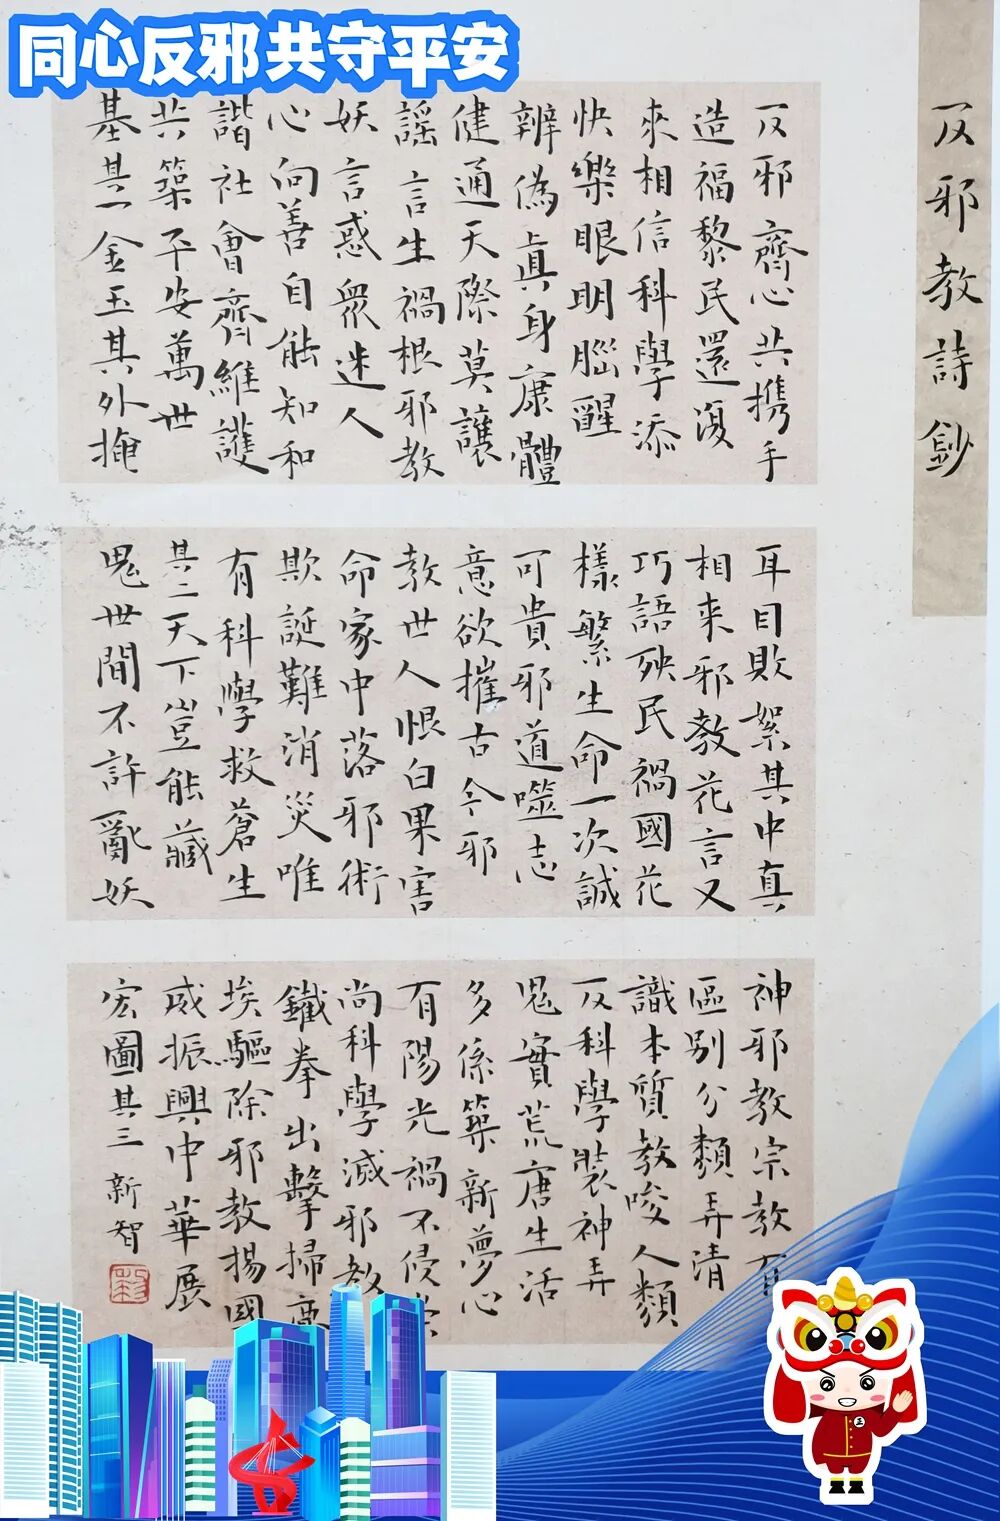 同心反邪共守平安
反邪教詩鈔
反邪齊心共携手
造福黎民還復
來相信科學添
快樂眼明腦醒
辨偽真身康體
健通天際莫讓
謡言生禍根邪教
妖言惑衆迷人
心向善自能知和
諧社會齊維護
共築平安萬世
基其一金玉其外掩
耳目敗絮其中真
相来邪教花言又
巧語殃民禍國花
樣繁生命一次誠
可貴邪道噬志
意欲摧古今邪
教世人恨白果害
命家中落邪術
欺誕難消災唯
有科學救蒼生
其二天下豈能藏
鬼世間不許亂妖
神邪教宗教有
區别分類弄清
識本質教唆人類
反科學裝神弄
鬼實荒唐生活
多係築新夢心
有陽光禍不侵
尚科學滅邪教
鐵拳出擊掃塵
埃驅除邪教揚國
威振興中華展
宏圖其三 新智